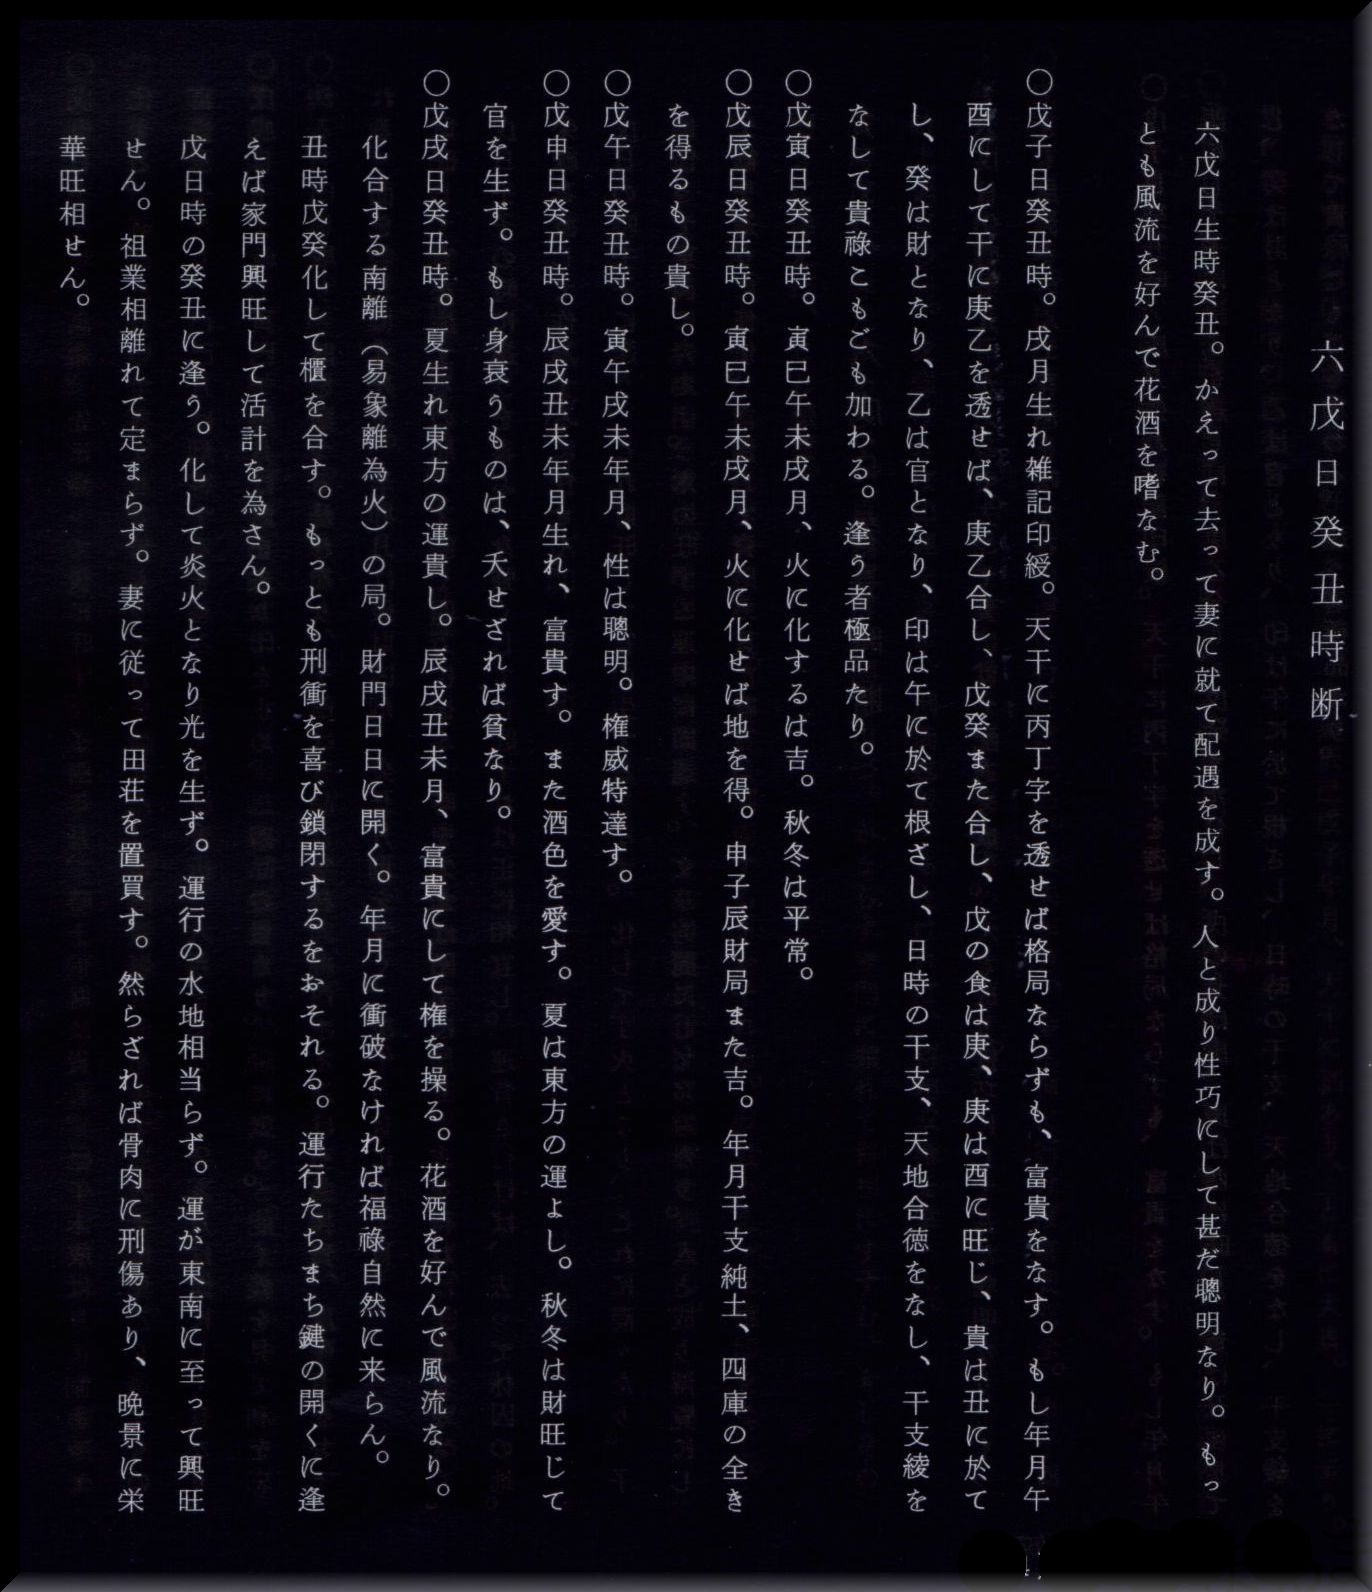 六戊日癸丑時断
六戊日生時癸丑。かえって去って妻に就て配遇を成す。人と成り性巧にして甚だ聰明なり。もっ
とも風流を好んで花酒を嗜なむ。
〇戊子日癸丑時。戌月生れ雑記印綬。天干に丙丁字を透せば格局ならずも、富貴をなす。もし年月午
酉にして干に庚乙を透せば、庚乙合し、戊癸また合し、戊の食は庚、庚は酉に旺じ、貴は丑に於て
し、癸は財となり、乙は官となり、印は午に於て根ざし、日時の干支、天地合徳をなし、干支綾を
なして貴祿こもごも加わる。逢う者極品たり。
〇戊寅日癸丑時。寅巳午未戌月、火に化するは吉。秋冬は平常。
〇戊辰日癸丑時。寅巳午未戌月、火に化せば地を得。申子辰財局また吉。年月干支純土、四庫の全き
を得るもの貴し。
〇戊午日癸丑時。寅午戌未年月、性は聰明。権威特達す。
〇戊申日癸丑時。辰戌丑未年月生れ、富貴す。また酒色を愛す。夏は東方の運よし。秋冬は財旺じて
官を生ず。もし身衰うものは、夭せざれば貧なり。
〇戊戌日癸丑時。夏生れ東方の運貴し。辰戌丑未月、富貴にして権を操る。花酒を好んで風流なり。
化合する南離（易象離為火）の局。財門日日に開く。年月に衝破なければ福祿自然に来らん。
丑時戊癸化して櫃を合す。もっとも刑衝を喜び鎖閉するをおそれる。運行たちまち鍵の開くに逢
えば家門興旺して活計を為さん。
戊日時の癸丑に逢う。化して炎火となり光を生ず。運行の水地相当らず。運が東南に至って興旺
せん。祖業相離れて定まらず。妻に従って田荘を置買す。然らざれば骨肉に刑傷あり、晩景に栄
華旺相せん。